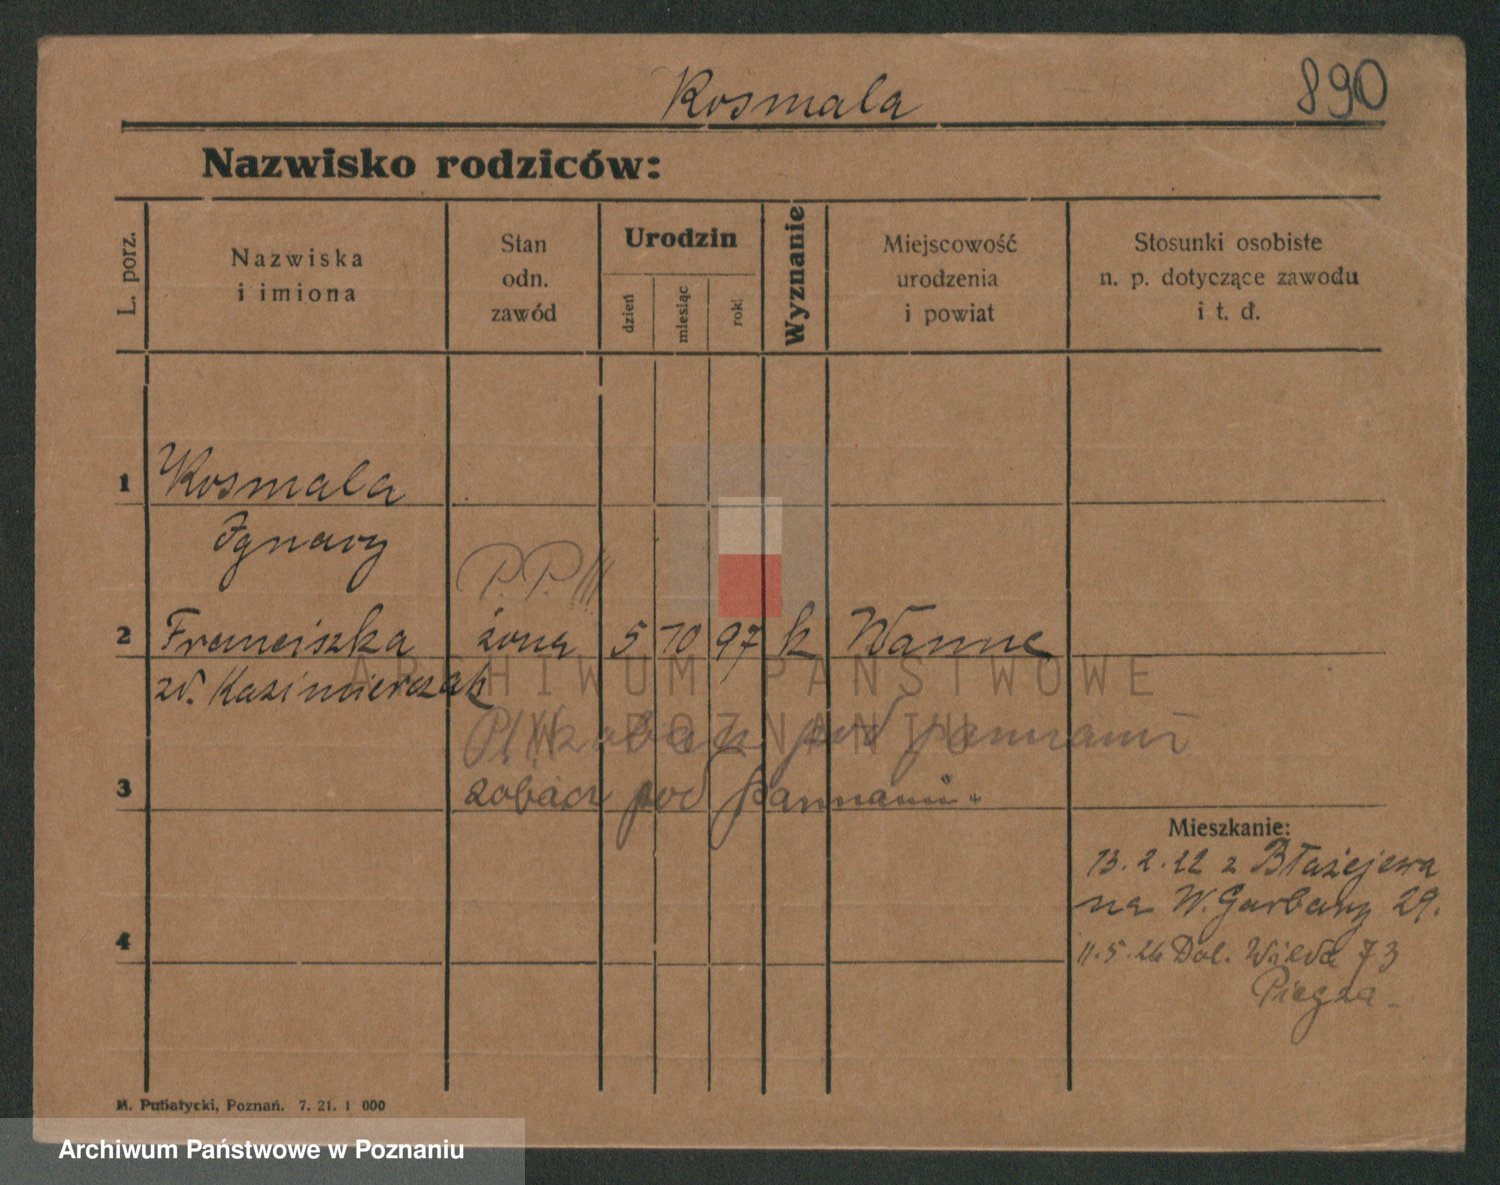 Kosmala
890
Nazwisko rodziców:
L. porz.
Nazwiska
i imiona
Stan
odn.
zawód
Urodzin
dzień
miesiąc
rok
Wyznanie
Miejscowość
urodzenia
i powiat
Stosunki osobiste
n. p. dotyczące zawodu
i t. d.
1 Kosmala
Ignacy
P.P.
2 Franciszka żona 5 10 97 k Wanne
zd. Kazimierczak
pod pannami
3 zobacz pod pannami
Mieszkanie:
13.2.22 z Błażejewa
na W. Garbary 29.
4
11.5.26 Dol. Wilda 73
Piegza
M. Putiatycki, Poznań. 7. 21. 1 000
ARCHIWUM PAŃSTWOWE
W POZNANIU
Archiwum Państwowe w Poznaniu